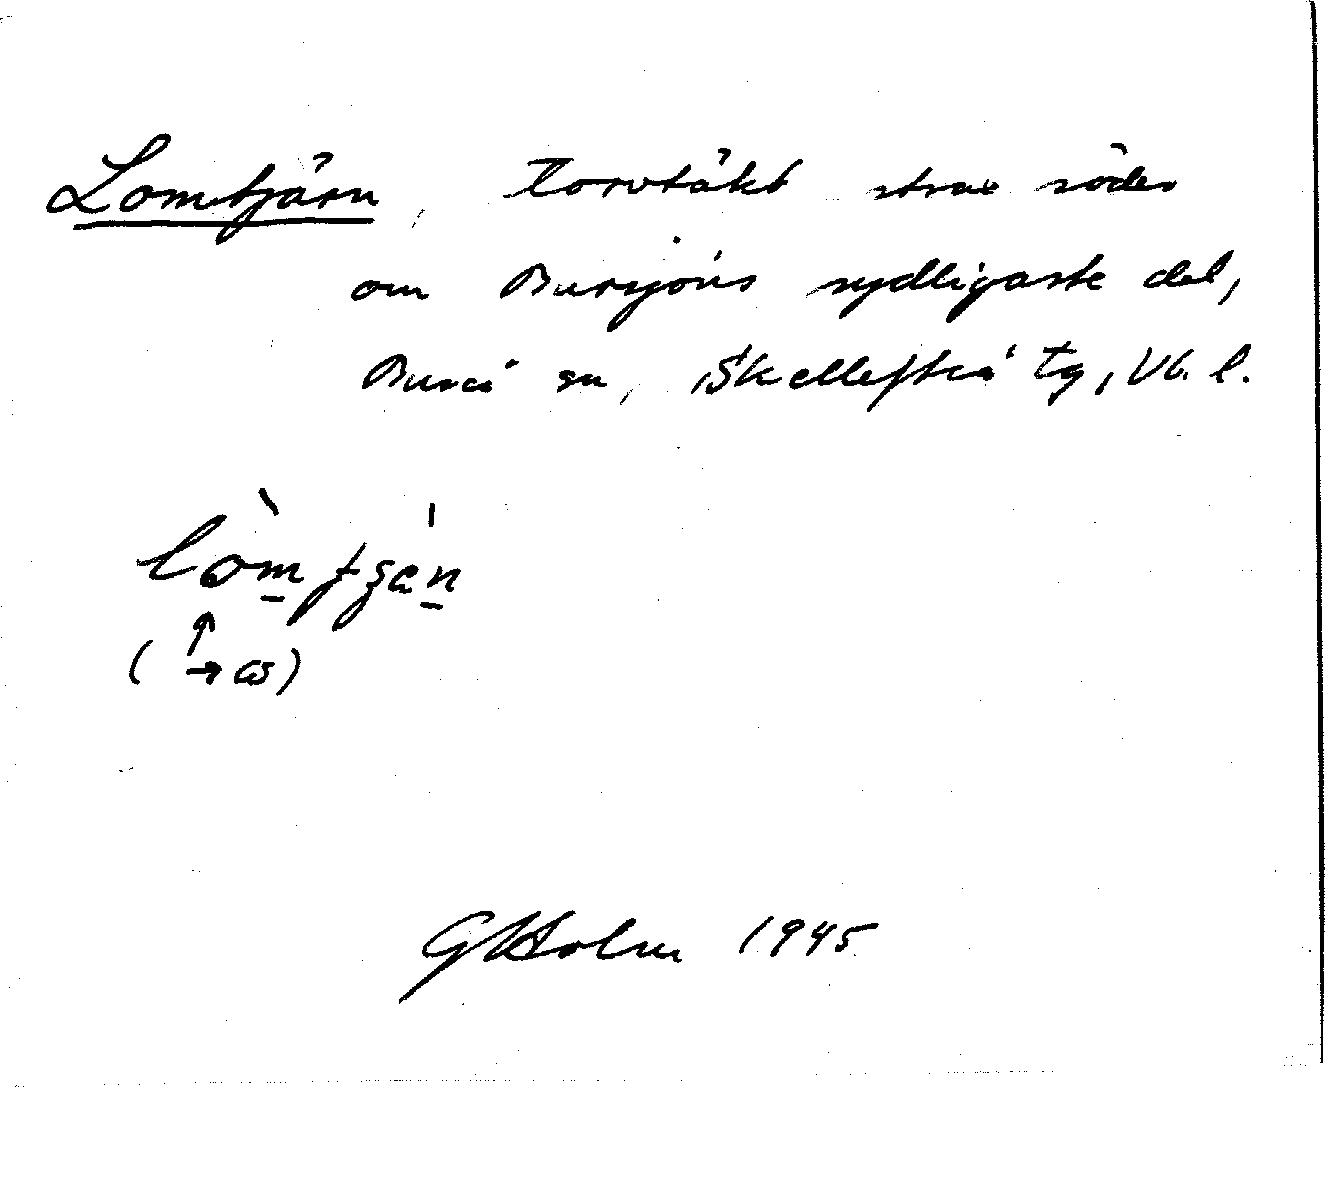 Lomtjärn, Torvtäkt strax söder
om Bursjöns sydligaste del,
Bureå sn, Skellefteå tg, Vb. l.
(→ ω)
GHolm 1945